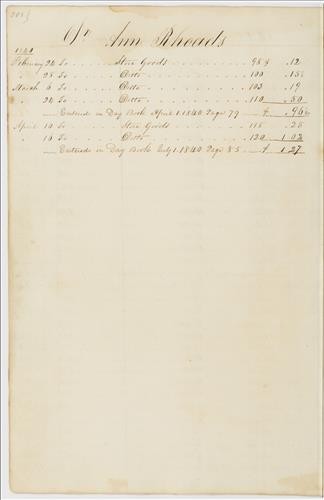 Dr Ann Rhoads
1840
February 24 To . . . . Store Goods . . . . . . . 98 $ .12
" 28 To . . . . . Ditto . . . . . . . . 100 .15
March 6 To . . . . . Ditto . . . . . . . . 103 .19
" 24 To . . . . . Ditto . . . . . . . . 110 .50
— Entered in Day Book April 1. 1840 Page 79 — $ .96
April 10 To . . . . Store Goods . . . . . . . 115 .25
" 16 To . . . . . Ditto . . . . . . . . 120 1.02
— Entered in Day Book July 1. 1840 Page 85 — $ 1.27